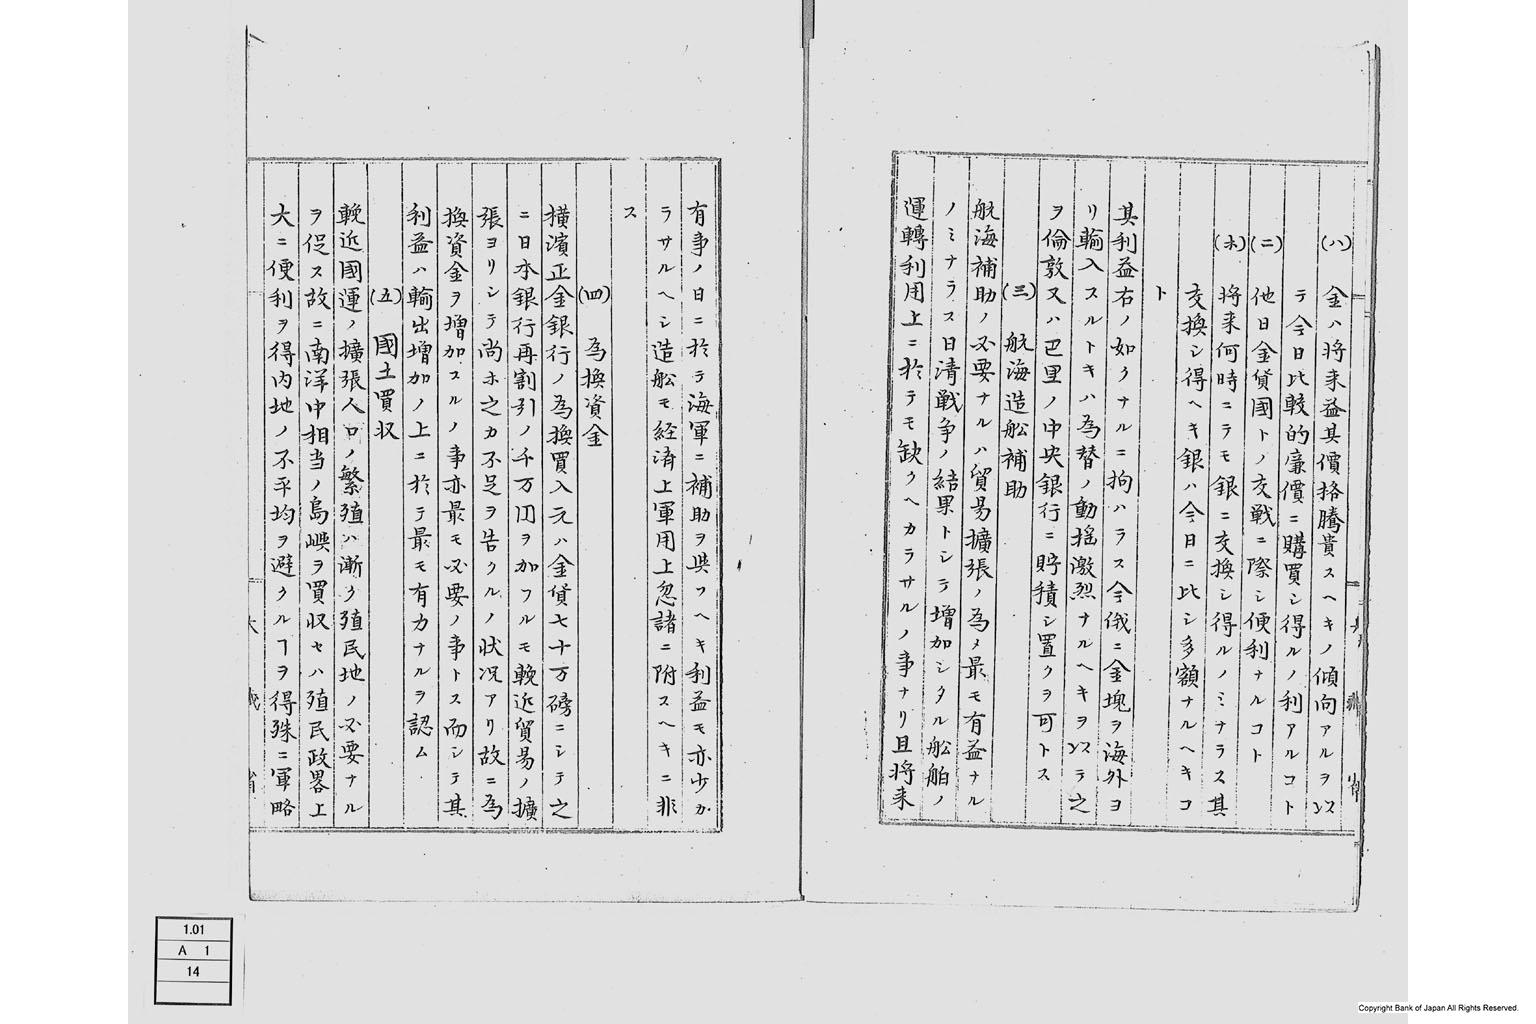 (ハ) 金ハ將来益其價格騰貴スヘキノ傾向アルヲ以
テ今日比較的廉價ニ購買シ得ルノ利アルコト
(ニ) 他日金貨國トノ交戦ニ際シ便利ナルコト
(ホ) 将来何時ニテモ銀ニ交換シ得ルノミナラス其
交換シ得ヘキ銀ハ今日ニ比シ多額ナルヘキコ
ト
其利益右ノ如クナルニ拘ハラス今俄ニ金塊ヲ海外ヨ
リ輸入スルトキハ為替ノ動揺激烈ナルヘキヲ以テ之
ヲ倫敦又ハ巴里ノ中央銀行ニ貯積シ置クヲ可トス
(三) 航海造船補助
航海補助ノ必要ナルハ貿易擴張ノ為メ最モ有益ナル
ノミナラス日清戦争ノ結果トシテ増加シタル船舶ノ
運轉利用上ニ於テモ缺クヘカラサルノ事ナリ且将来
有事ノ日ニ於テ海軍ニ補助ヲ與フヘキ利益モ亦少カ
ラサルヘシ造船モ経済上軍用上忽諸ニ附スヘキニ非
ス
(四) 為換資金
横濱正金銀行ノ為換買入元ハ金貨七十万磅ニシテ之
ニ日本銀行再割引ノ千万円ヲ加フルモ輓近貿易ノ擴
張ヨリシテ尚ホ之カ不足ヲ告クルノ状况アリ故ニ為
換資金ヲ増加スルノ事亦最モ必要ノ事トス而シテ其
利益ハ輸出増加ノ上ニ於テ最モ有力ナルヲ認ム
(五) 國土買収
輓近國運ノ擴張人口ノ繁殖ハ漸ク殖民地ノ必要ナル
ヲ促ス故ニ南洋中相当ノ島嶼ヲ買収セハ殖民政畧上
大ニ便利ヲ得内地ノ不平均ヲ避クルヿヲ得殊ニ軍略
大 蔵 省
1.01
A 1
14
Copyright Bank of Japan All Rights Reserved.